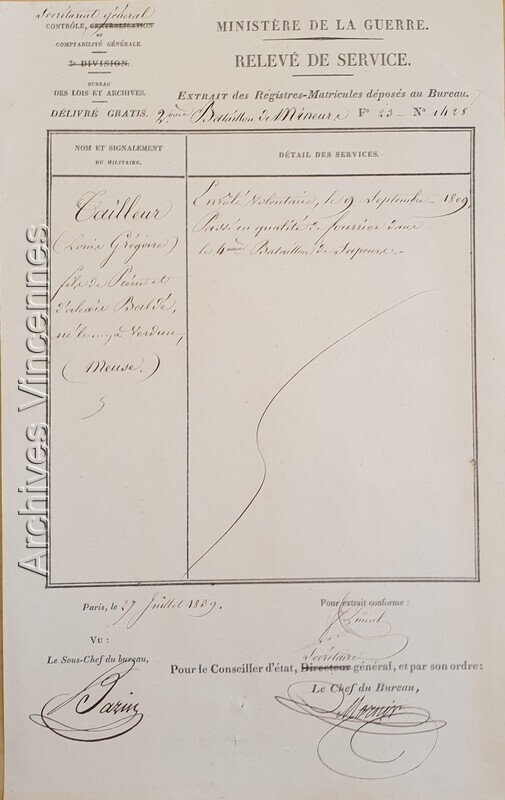 Secrétariat général
CONTRÔLE, CENTRALISATION
ET
COMPTABILITÉ GÉNÉRALE.
3e DIVISION.
BUREAU
DES LOIS ET ARCHIVES.
DÉLIVRÉ GRATIS.
MINISTÈRE DE LA GUERRE.
RELEVÉ DE SERVICE.
EXTRAIT des Régistres-Matricules déposés au Bureau.
2ème Bataillon de Mineurs Fo 23 - No 1428
NOM ET SIGNALEMENT
DU MILITAIRE.
DÉTAIL DES SERVICES.
Tailleur
(Louis Grégoire)
fils de Pierre et
d'alexis
né le à Verdun,
(Meuse.)
Enrôlé Volontaire, le 9 Septembre 1809.
Passé en qualité de fourrier dans
le 4ème Bataillon de Sapeurs.
Paris, le 27 Juillet 1839.
Pour extrait conforme :
VU :
Le Sous-Chef du bureau,
Secrétaire
Pour le Conseiller d'état, Directeur général, et par son ordre:
Le Chef du Bureau,
Archives Vincennes